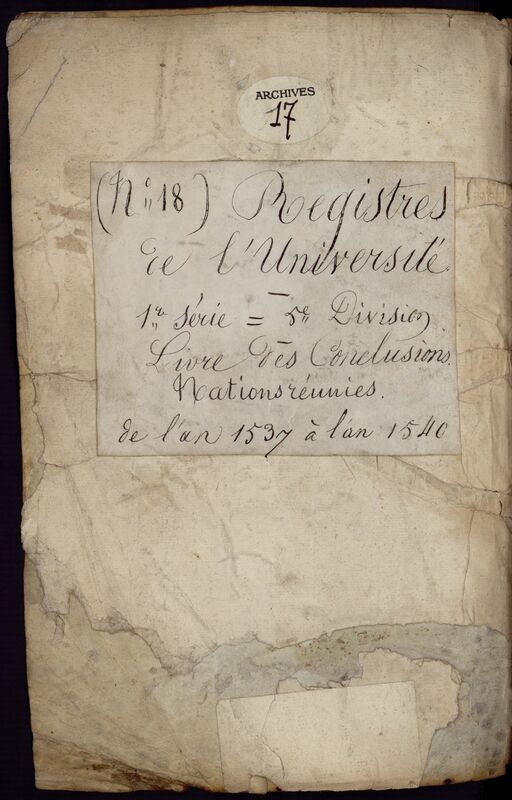 ARCHIVES
17
(N° 18) Registres
de l'Université.
1re Série = 5e Division
Livre des Conclusions.
Nations réunies.
de l'an 1537 à l'an 1540